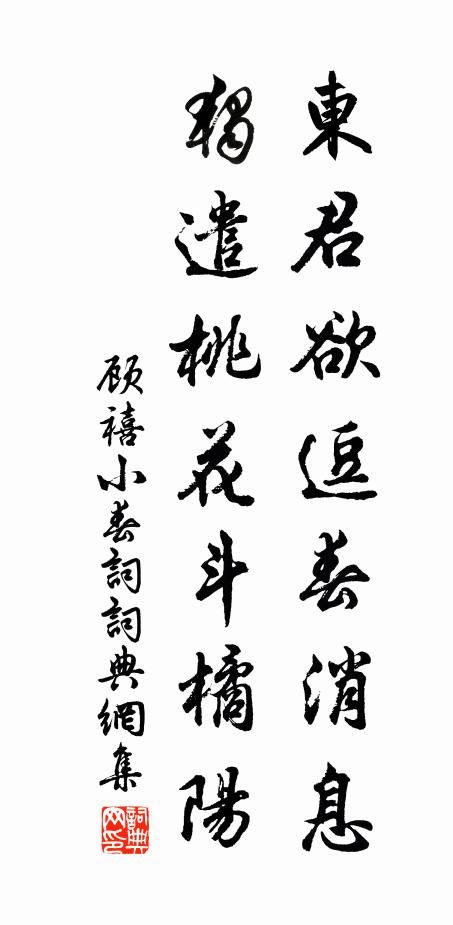 東君欲逗春消息
獨遣桃花斗橘陽
顾禧小春詞詞典網集
詞典网印